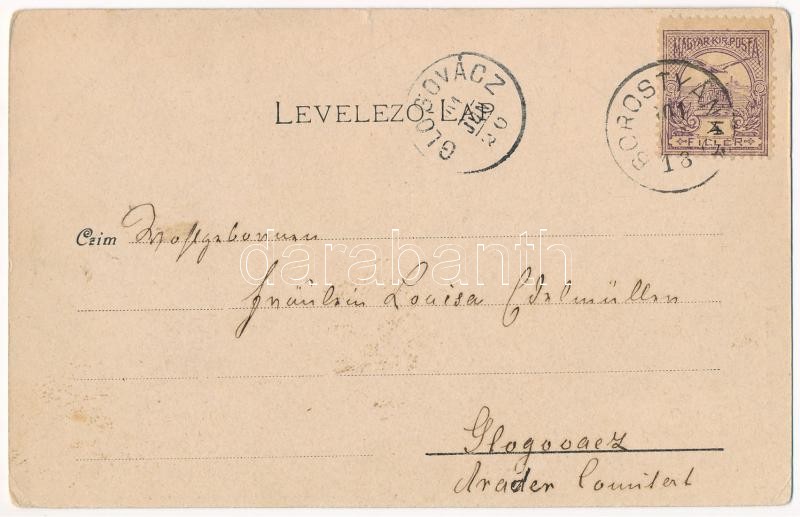 MAGYAR KIR. POSTA
FILLÉR
GLOGOVÁCZ
JUN
LEVELEZŐ-LAP
Czim Wohlgeboren
Fräulein Louisa Edelmüller
darabanth
Glogovacz
Arader Comitat